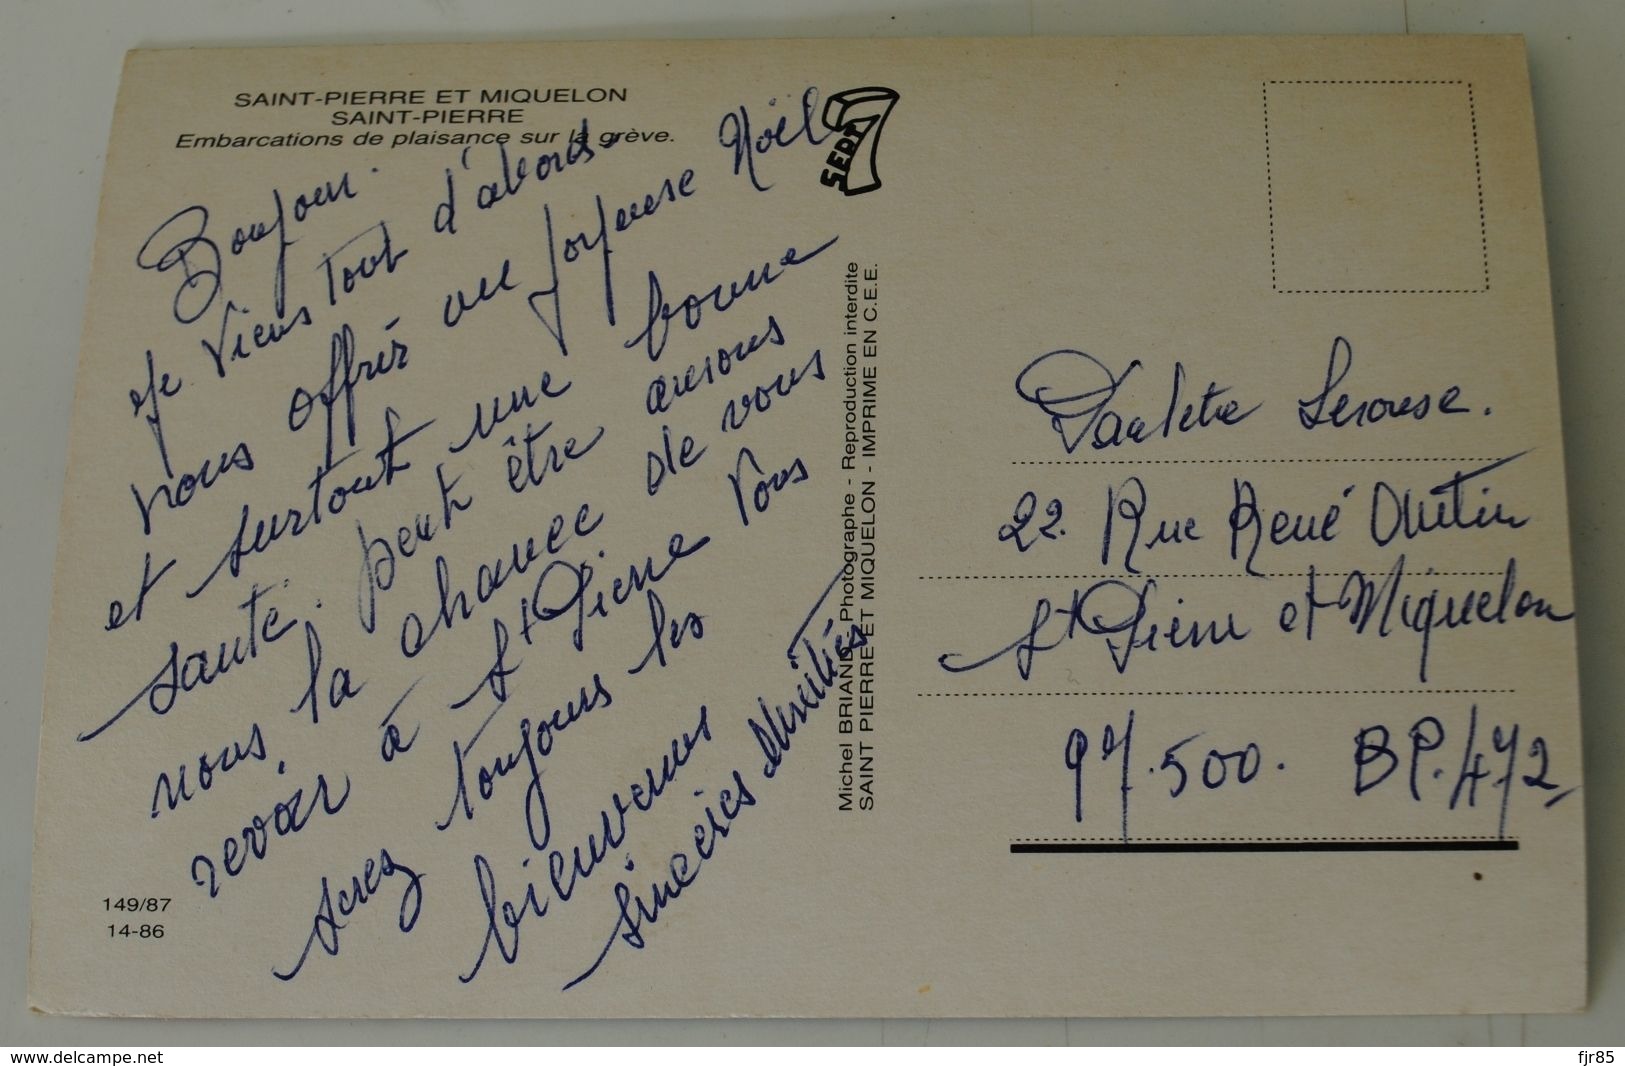 SAINT-PIERRE ET MIQUELON
SAINT-PIERRE
Embarcations de plaisance sur la grève.
SEPT 7
Bonjour.
Je Viens tout d'abords
vous offrir un joyeuse Noël
et surtout une bonne
santé. peut être aurons
nous, la chance de vous
revoir à St Pierre Vous
serez toujours les
bienvenus
sincères Amitiés
149/87
14-86
Michel BRIAND - Photographe - Reproduction interdite
SAINT PIERRE ET MIQUELON - IMPRIME EN C.E.E.
Paulette
22. Rue René Autin
St Pierre et Miquelon
97.500. BP.472
www.delcampe.net
fjr85